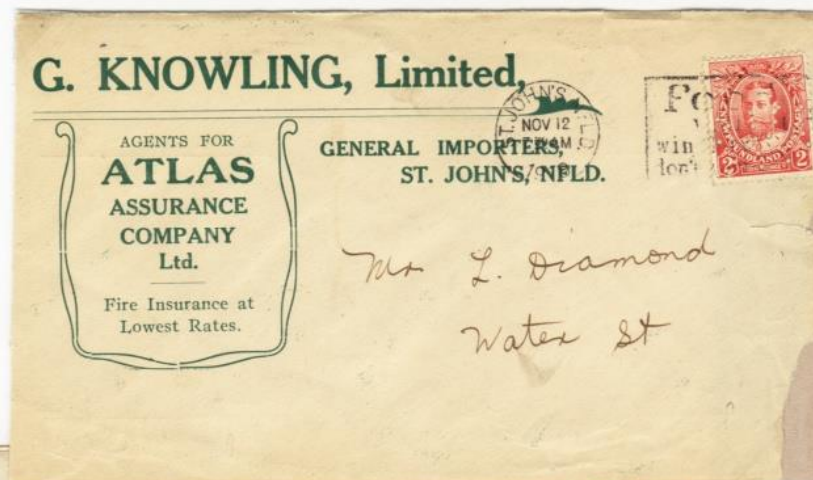 G. KNOWLING, Limited,
AGENTS FOR
ATLAS
ASSURANCE
COMPANY
Ltd.
Fire Insurance at
Lowest Rates.
GENERAL IMPORTERS,
ST. JOHN'S, NFLD.
ST. JOHN'S NFLD.
NOV 12
AM
win
2 2
Mr L. Diamond
Water St